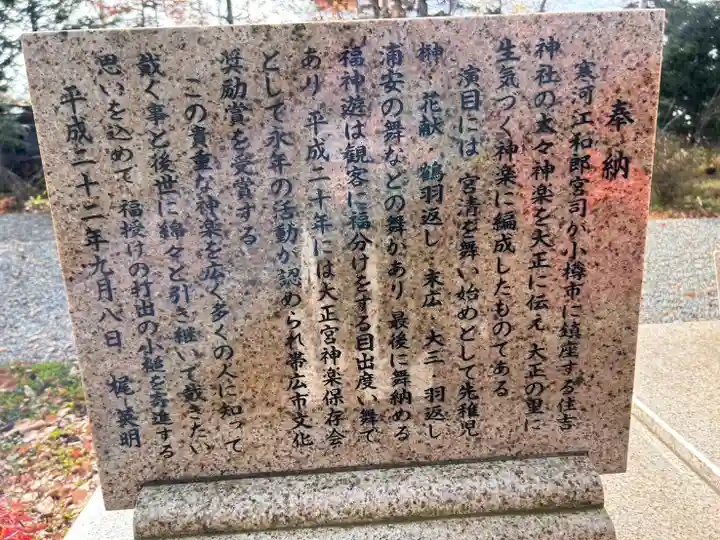 奉納
寒河江和郎宮司が小樽市に鎮座する住吉
神社の太々神楽を大正に伝え 大正の里に
生気づく神楽に編成したものである
演目には 宮清を舞い始めとして先稚児
榊 花献 鶴羽返し 末広 大三 羽返し
浦安の舞などの舞があり 最後に舞納める
福神遊は観客に福分けをする目出度い舞で
あり 平成二十年には大正宮神楽保存会
として永年の活動が認められ帯広市文化
奨励賞を受賞する
この貴重な神楽を広く多くの人に知って
戴く事と後世に綿々と引き継いで戴きたい
思いを込めて 福授けの打出の小槌を寄進する
平成二十二年九月八日 梶英明